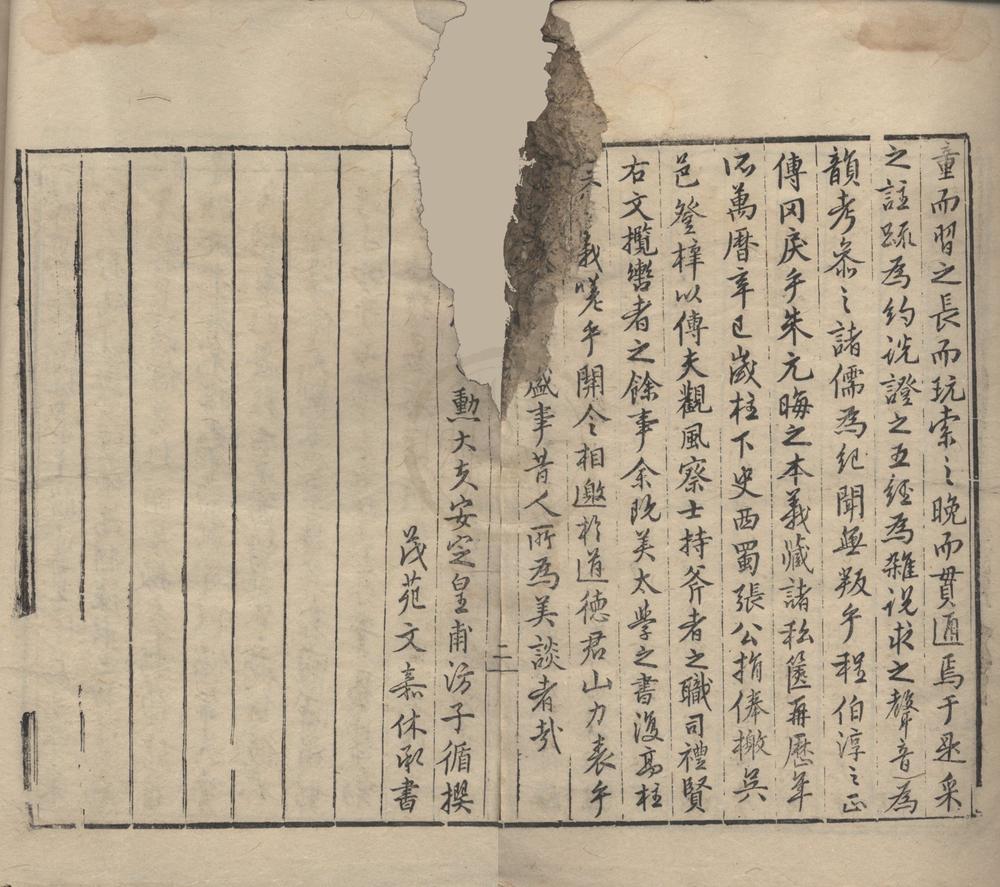 童而習之長而玩索之晚而貫通焉于是采
之註疏為約說證之五經為雜說求之聲音為
韻考叅之諸儒為紀聞無叛乎程伯淳之正
傳罔戾乎朱元晦之本義藏諸私篋再歷年
所萬曆辛巳歲柱下史西蜀張公捐俸檄吳
邑登梓以傳夫觀風察士持斧者之職司禮賢
右文攬轡者之餘事余既美太學之書復高柱
義嗟乎關令相邀於道德君山力表乎
盛事昔人所為美談者哉
勳大夫安定皇甫汸子循撰
茂苑文嘉休承書
二